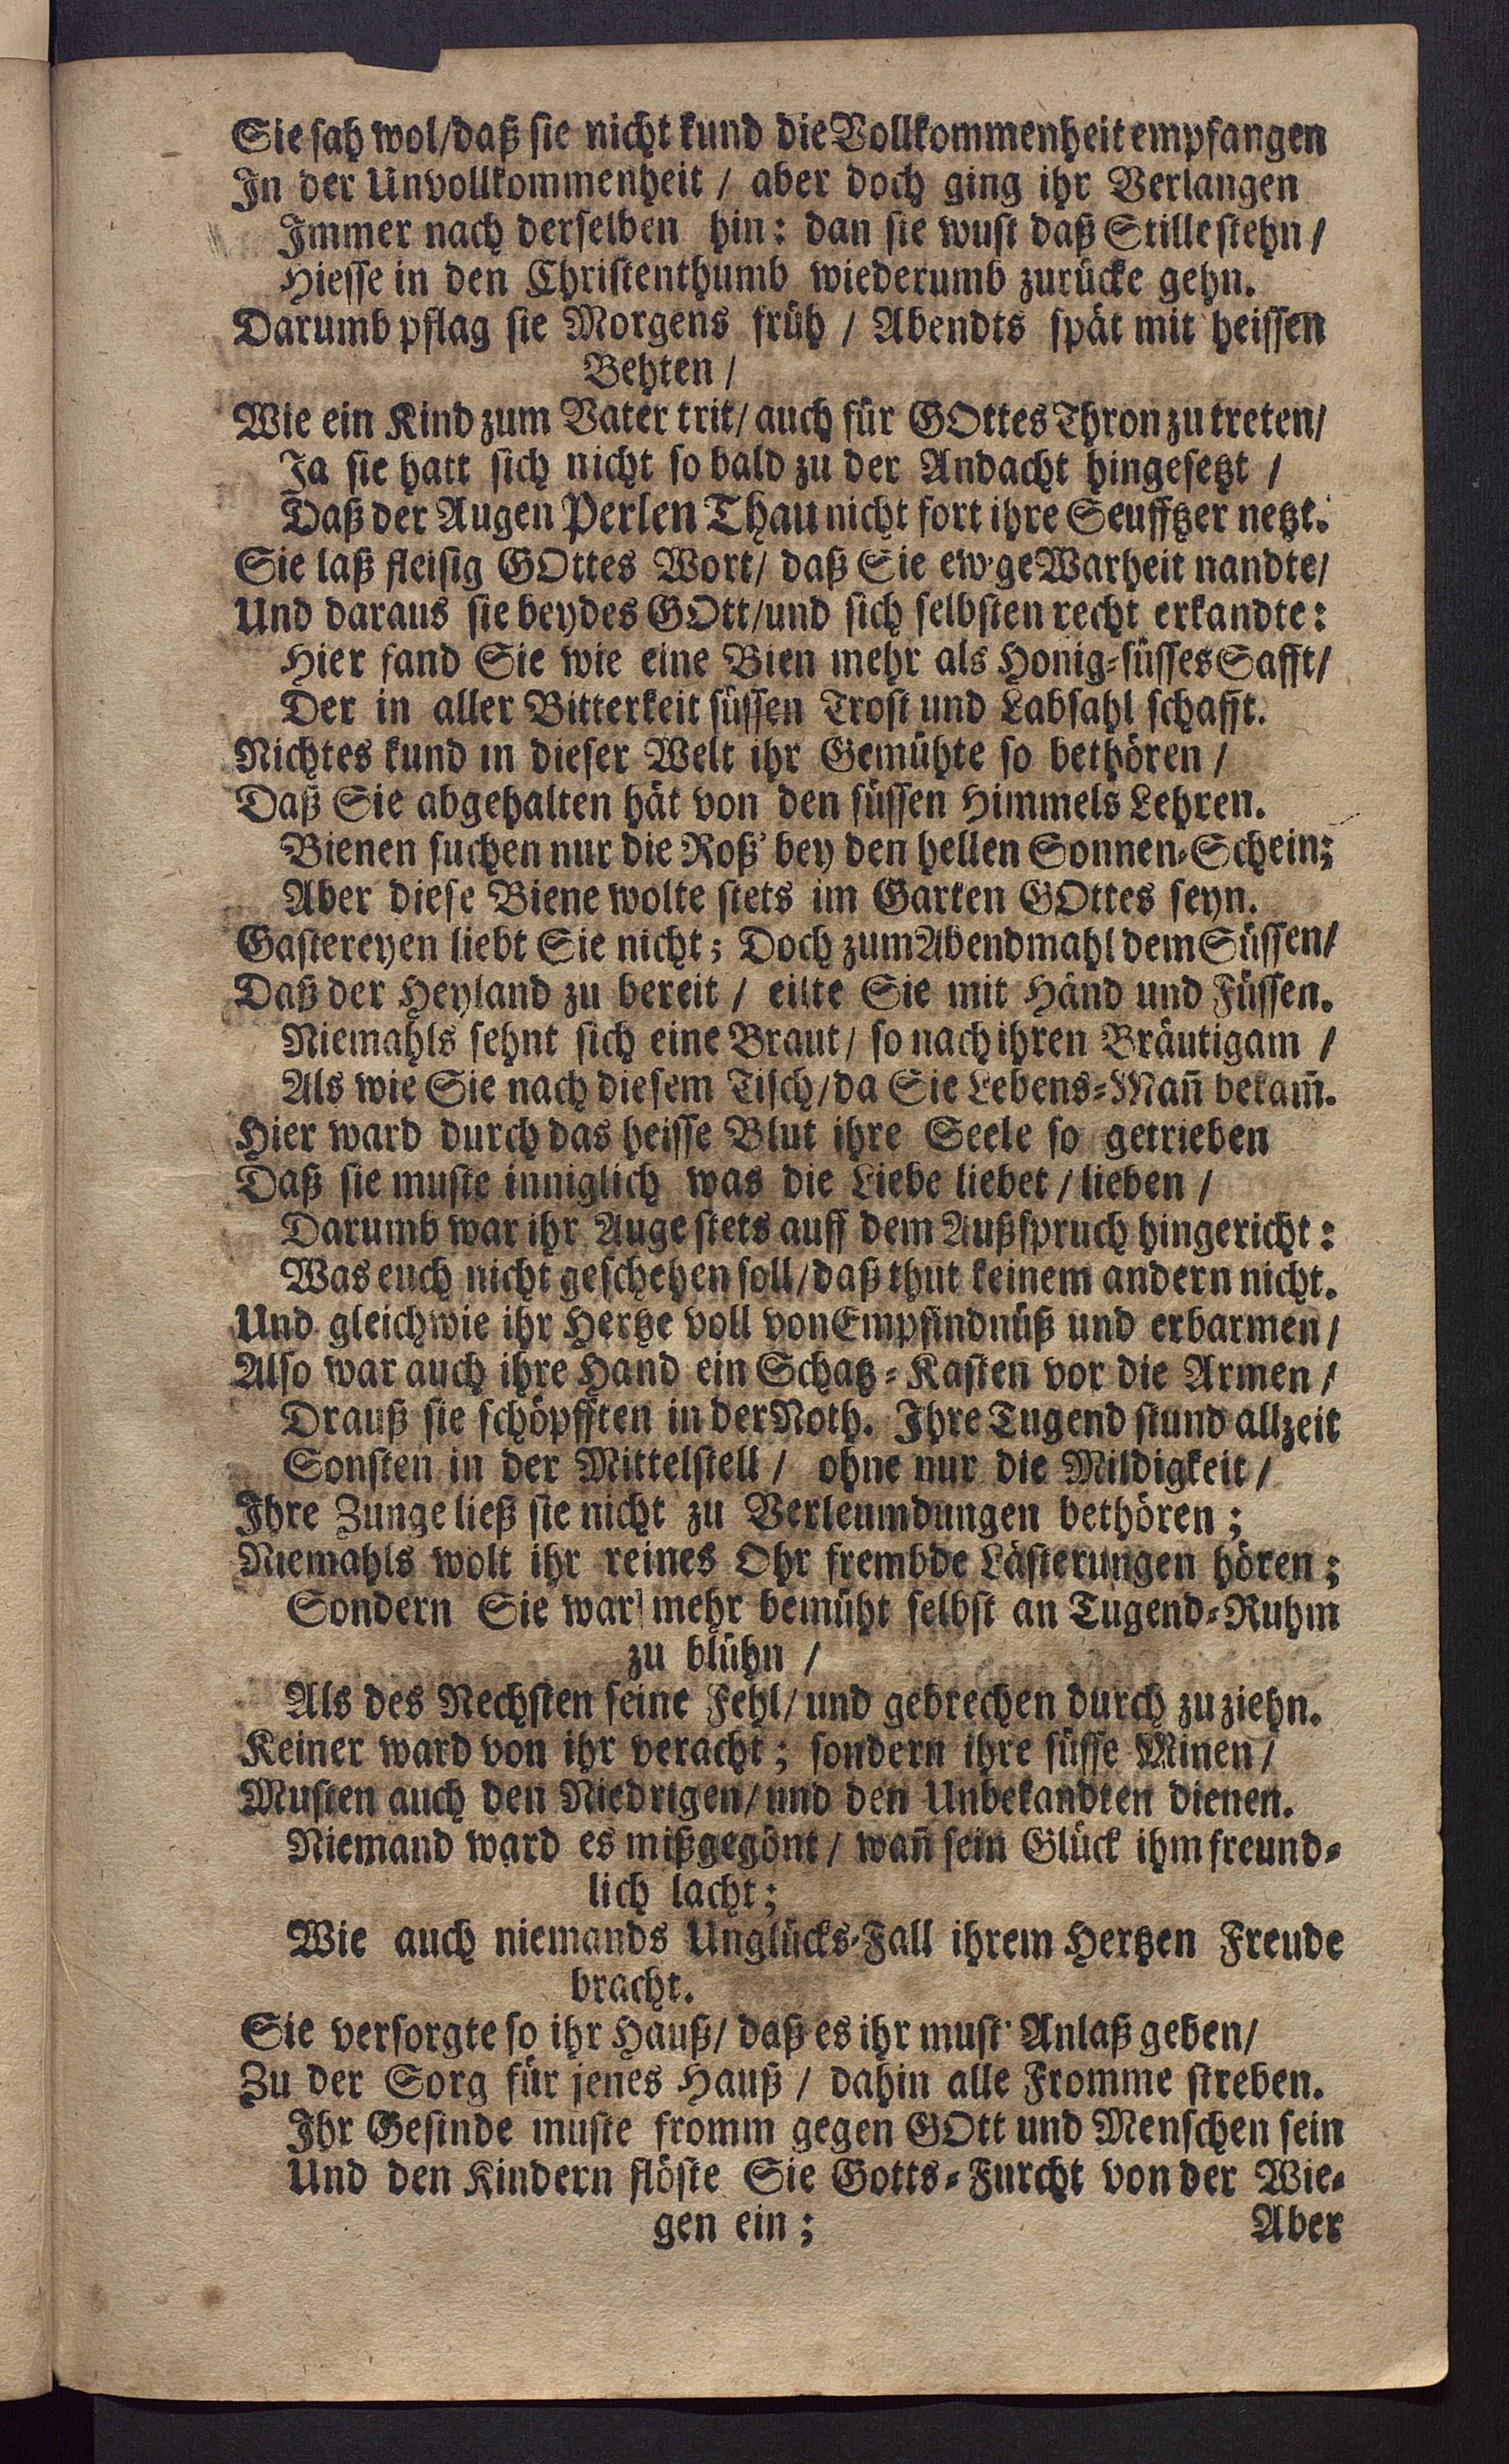 Sie sah wol/daß sie nicht kund die Vollkommenheit empfangen
In der Unvollkommenheit / aber doch ging ihr Verlangen
Immer nach derselben hin: dan sie wust daß Stille stehn /
Hiesse in den Christenthumb wiederumb zurücke gehn.
Darumb pflag sie Morgens früh / Abendts spät mit heissen
Behten /
Wie ein Kind zum Vater trit/ auch für GOttes Thron zu treten/
Ja sie hatt sich nicht so bald zu der Andacht hingesetzt /
Daß der Augen Perlen Thau nicht fort ihre Seufftzer netzt.
Sie laß fleisig GOttes Wort/ daß Sie ew'ge Warheit nandte/
Und daraus sie beydes GOtt/und sich selbsten recht erkandte:
Hier fand Sie wie eine Bien mehr als Honig-süsses Safft/
Der in aller Bitterkeit süssen Trost und Labsahl schafft.
Nichtes kund in dieser Welt ihr Gemühte so bethören /
Daß Sie abgehalten hät von den süssen Himmels Lehren.
Bienen suchen nur die Roß' bey den hellen Sonnen-Schein;
Aber diese Biene wolte stets im Garten GOttes seyn.
Gastereyen liebt Sie nicht; Doch zum Abendmahl dem Süssen/
Daß der Heyland zu bereit / eilte Sie mit Händ und Füssen.
Niemahls sehnt sich eine Braut/ so nach ihren Bräutigam /
Als wie Sie nach diesem Tisch/da Sie Lebens-Mañ bekam̃.
Hier ward durch das heisse Blut ihre Seele so getrieben
Daß sie muste inniglich was die Liebe liebet / lieben /
Darumb war ihr Auge stets auff dem Außspruch hingericht:
Was euch nicht geschehen soll/daß thut keinem andern nicht.
Und gleichwie ihr Hertze voll von Empfindnüß und erbarmen/
Also war auch ihre Hand ein Schatz-Kasten vor die Armen /
Drauß sie schöpfften in der Noth. Ihre Tugend stund allzeit
Sonsten in der Mittelstell / ohne nur die Mildigkeit /
Ihre Zunge ließ sie nicht zu Verleumdungen bethören;
Niemahls wolt ihr reines Ohr frembde Lästerungen hören;
Sondern Sie war mehr bemüht selbst an Tugend-Ruhm
zu blühn /
Als des Nechsten seine Fehl/ und gebrechen durch zu ziehn.
Keiner ward von ihr veracht; sondern ihre süsse Minen /
Musten auch den Niedrigen/ und den Unbekandten dienen.
Niemand ward es mißgegönt / wañ sein Glück ihm freund-
lich lacht;
Wie auch niemands Unglücks-Fall ihrem Hertzen Freude
bracht.
Sie versorgte so ihr Hauß/ daß es ihr must' Anlaß geben/
Zu der Sorg für jenes Hauß / dahin alle Fromme streben.
Ihr Gesinde muste fromm gegen GOtt und Menschen sein
Und den Kindern flöste Sie Gotts-Furcht von der Wie-
gen ein;
Aber